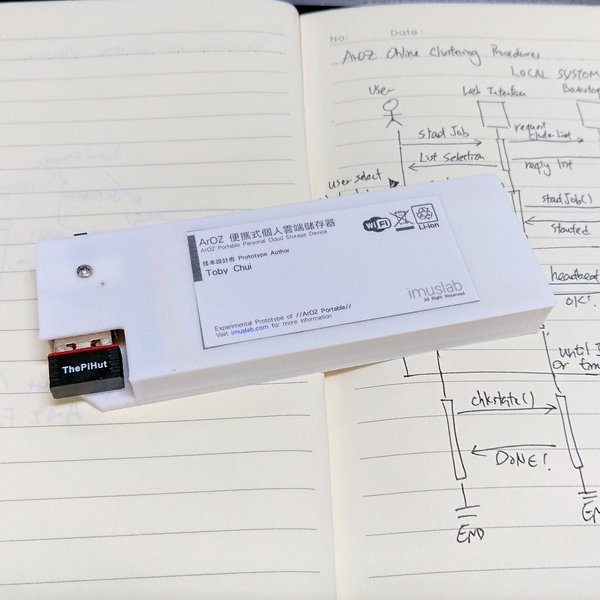 No:
Date
ArOZ Online Clustering Procedures
LOCAL SYSTEM
User
Web Interface
start Job
request
Cluster List
List Selection
reply list
User select
startJob()
started
ArOZ 便攜式個人雲端儲存器
ArOZ Portable Personal Cloud Storage Device
樣本設計者 Prototype Author
Toby Chui
WiFi
Li-ion
imuslab
All Right Reserved
Experimental Prototype of //ArOZ Portable//
Visit imuslab.com for more information
ThePiHut
heartbeat
OK!
Until
or
chkstate()
DONE!
END
END